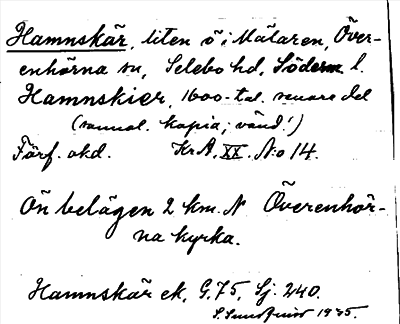 Hamnskär, liten ö i Mälaren, Över-
enhörna sn, Selebo hd, Söderm. l.
Hamnskier, 1600-tal. senare del
(samml. kopia; vänd!)
Förf. okd. KrA. XX. N:o 14.
Ön belägen 2 km. N Överenhör-
na kyrka.
Hamnskär ek, G.75, Sj. 240.
1935.